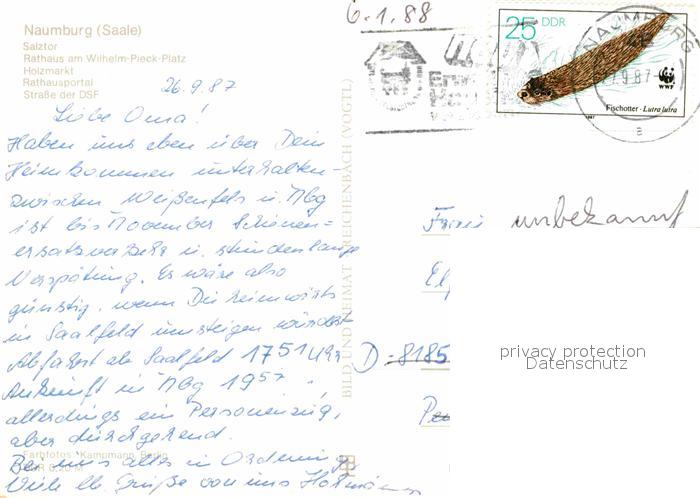 6.1.88
Naumburg (Saale)
Salztor
Rathaus am Wilhelm-Pieck-Platz
Holzmarkt
Rathausportal
Straße der DSF
26.9.87
Liebe Oma!
Haben uns eben über Dein
Heimkommen unterhalten-
zwischen Weißenfels u. Nbg
ist bis November Schienen=
ersatzverkehr u. stundenlange
Verspätung. Es wäre also
günstig, wenn Du heimwärts
in Saalfeld umsteigen würdest
Abfahrt ab Saalfeld 17 51 Uhr
Ankunft in Nbg 19 57,
allerdings ein Personenzug,
aber durchgehend.
Bei uns alles in Ordnung
Viele lb. Grüße von uns
Farbfotos: Kampmann, Berlin
BILD UND HEIMAT REICHENBACH (VOGTL)
25 DDR
WWF
Fischotter · Lutra lutra
NAUMBURG
9.87-
a
unbekannt
D-8185
privacy protection
Datenschutz